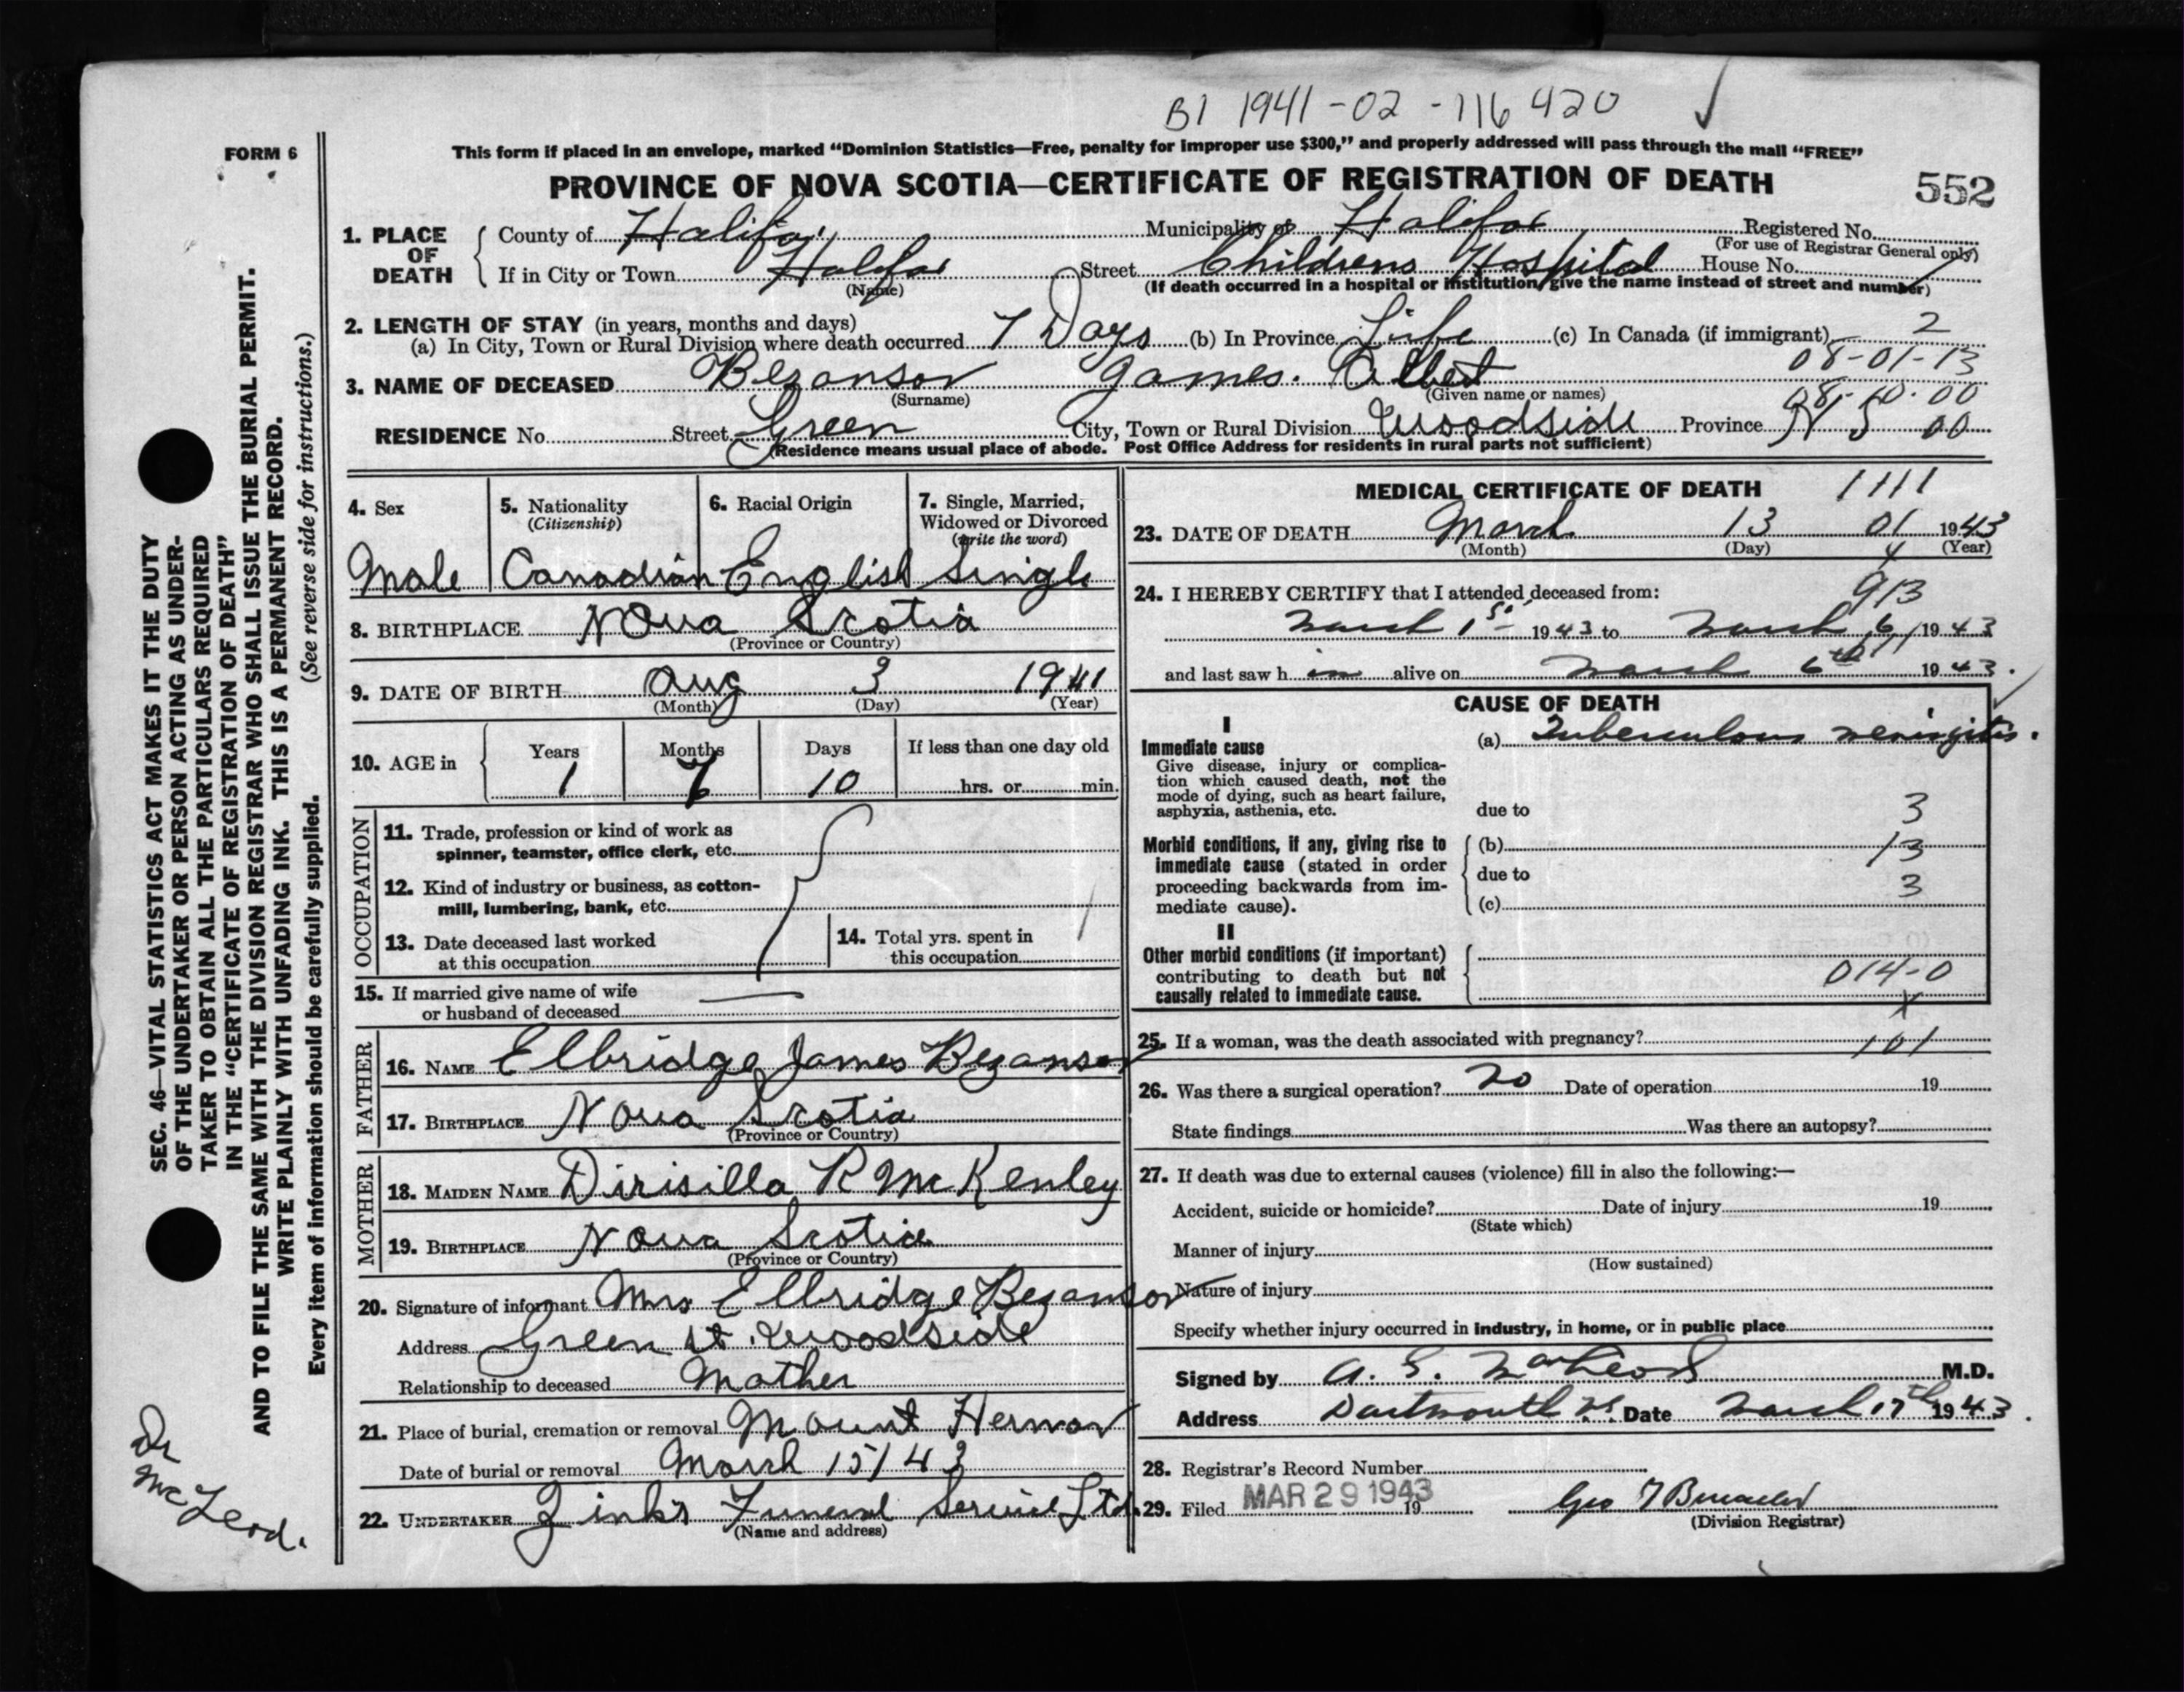 B1 1941-02-116420
FORM 6
This form if placed in an envelope, marked “Dominion Statistics—Free, penalty for improper use $300,” and properly addressed will pass through the mail “FREE”
PROVINCE OF NOVA SCOTIA—CERTIFICATE OF REGISTRATION OF DEATH
552
1. PLACE OF DEATH
County of Halifax Municipality of Halifax Registered No.
(For use of Registrar General only)
If in City or Town Halifax Street Childrens Hospital House No.
(Name) (If death occurred in a hospital or institution, give the name instead of street and number)
2. LENGTH OF STAY (in years, months and days)
(a) In City, Town or Rural Division where death occurred 7 Days (b) In Province Life (c) In Canada (if immigrant) 2
08-01-13
3. NAME OF DECEASED Bezanson James. Albert
(Surname) (Given name or names)
08-10-00
RESIDENCE No. Street Green City, Town or Rural Division Woodside Province N S 00
(Residence means usual place of abode. Post Office Address for residents in rural parts not sufficient)
4. Sex Male
5. Nationality (Citizenship) Canadian
6. Racial Origin English
7. Single, Married, Widowed or Divorced (write the word) Single
8. BIRTHPLACE Nova Scotia
(Province or Country)
9. DATE OF BIRTH Aug 3 1941
(Month) (Day) (Year)
10. AGE in Years Months Days If less than one day old
1 7 10 hrs. or min.
OCCUPATION
11. Trade, profession or kind of work as
spinner, teamster, office clerk, etc.
12. Kind of industry or business, as cotton-
mill, lumbering, bank, etc.
13. Date deceased last worked
at this occupation
14. Total yrs. spent in
this occupation
15. If married give name of wife
or husband of deceased
FATHER
16. NAME Elbridge James Bezanson
17. BIRTHPLACE Nova Scotia
(Province or Country)
MOTHER
18. MAIDEN NAME Dirisilla R McKenley
19. BIRTHPLACE Nova Scotia
(Province or Country)
20. Signature of informant Mrs Elbridge Bezanson
Address Green St. Woodside
Relationship to deceased Mother
21. Place of burial, cremation or removal Mount Hermon
Date of burial or removal March 15/43
22. UNDERTAKER Zink's Funeral Service Ltd.
(Name and address)
MEDICAL CERTIFICATE OF DEATH 1111
23. DATE OF DEATH March 13 01 1943
(Month) (Day) (Year)
24. I HEREBY CERTIFY that I attended deceased from: 913
March 1st 1943 to March 6 1943
and last saw h im alive on March 6th 1943.
CAUSE OF DEATH
I
Immediate cause
Give disease, injury or complica-
tion which caused death, not the
mode of dying, such as heart failure,
asphyxia, asthenia, etc.
(a) Tuberculous meningitis.
due to 3
Morbid conditions, if any, giving rise to
immediate cause (stated in order
proceeding backwards from im-
mediate cause).
(b) 13
due to 3
(c)
II
Other morbid conditions (if important)
contributing to death but not
causally related to immediate cause.
014-0
X
25. If a woman, was the death associated with pregnancy? 101
26. Was there a surgical operation? no Date of operation 19
State findings Was there an autopsy?
27. If death was due to external causes (violence) fill in also the following:—
Accident, suicide or homicide? Date of injury 19
(State which)
Manner of injury
(How sustained)
Nature of injury
Specify whether injury occurred in industry, in home, or in public place
Signed by A. G. MacLeod M.D.
Address Dartmouth N.S. Date March 17th 1943.
28. Registrar's Record Number
29. Filed MAR 29 1943 19 Geo
(Division Registrar)
SEC. 46—VITAL STATISTICS ACT MAKES IT THE DUTY
OF THE UNDERTAKER OR PERSON ACTING AS UNDER-
TAKER TO OBTAIN ALL THE PARTICULARS REQUIRED
IN THE “CERTIFICATE OF REGISTRATION OF DEATH”
AND TO FILE THE SAME WITH THE DIVISION REGISTRAR WHO SHALL ISSUE THE BURIAL PERMIT.
WRITE PLAINLY WITH UNFADING INK. THIS IS A PERMANENT RECORD.
Every item of information should be carefully supplied. (See reverse side for instructions.)
Dr
McLeod.